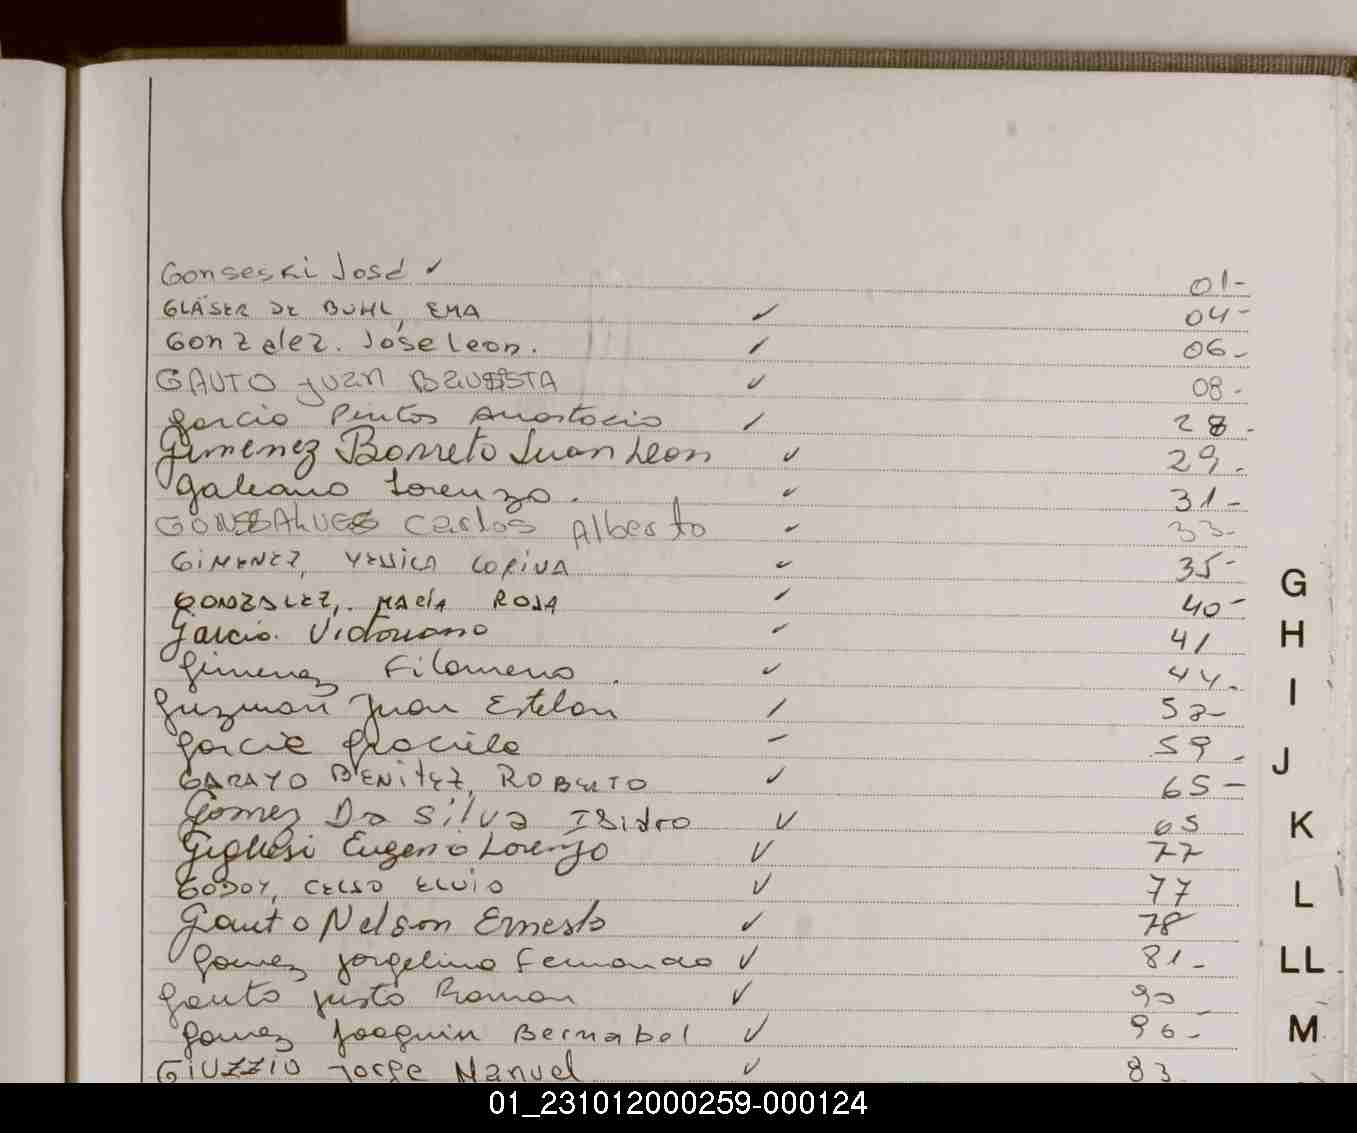 Gonseski José ✓ 01-
GLÄSER DE BUHL, EMA ✓ 04-
Gonzalez. Jose Leon. ✓ 06-
GAUTO Juan BAUTISTA ✓ 08-
Garcia Pintos Anastacio ✓ 28-
Gimenez Barreto Juan Leon ✓ 29.
Galeano Lorenzo. ✓ 31-
GONSALVES Carlos Alberto ✓ 33-
GIMENEZ, YESICA CORINA ✓ 35-
GONZALEZ, MARÍA ROSA ✓ 40-
Garcia. Victoriano ✓ 41
Gimenez Filomeno. ✓ 44-
Guzman Juan Esteban ✓ 52-
Garcia Graciela - 59-
GARAYO BENITEZ, ROBERTO ✓ 65-
Gomez Da Silva Isidro ✓ 65
Eugenio Lorenzo ✓ 77
GODOY, CELSO ELVIO ✓ 77
Gauto Nelson Ernesto ✓ 78
Gomez Jorgelino Fernando ✓ 81-
Gauto Justo Ramon ✓ 90
Gomez Joaquin Bernabel ✓ 96-
GIUZZIO Jorge Manuel ✓ 83
G
H
I
J
K
L
LL
M
01_231012000259-000124